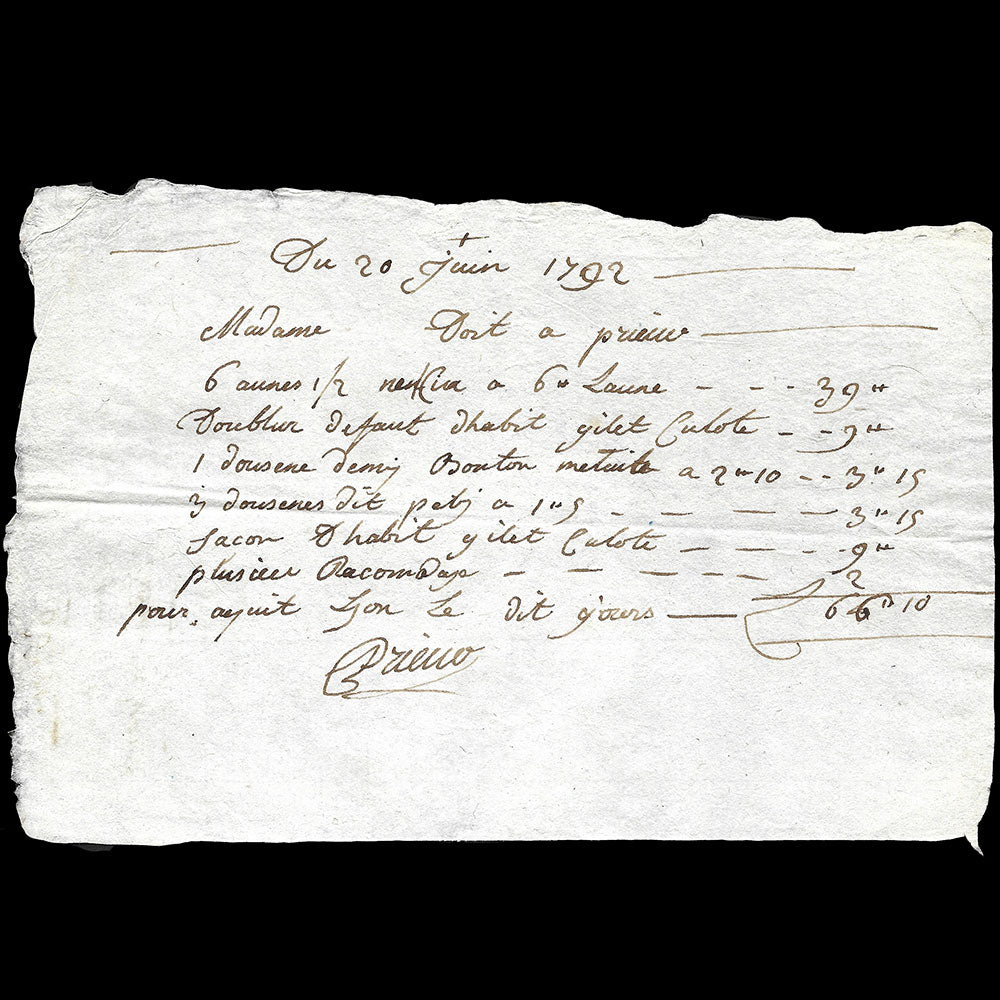 Du 20 juin 1792
Madame Doit a prieur
6 aunes 1/2 a 6# Laune - - - 39#
Doublur defaut dhabit gilet Culote - - 9#
1 dousene demij Bouton a 2#10 - - 3# 15
3 dousenes dit a 1#5 - - - - 3# 15
facon Dhabit gilet Culote - - - - 9#
plusieur - - - - - - 2
pour aquit Lyon Le dit jours - 66# 10
Prieur